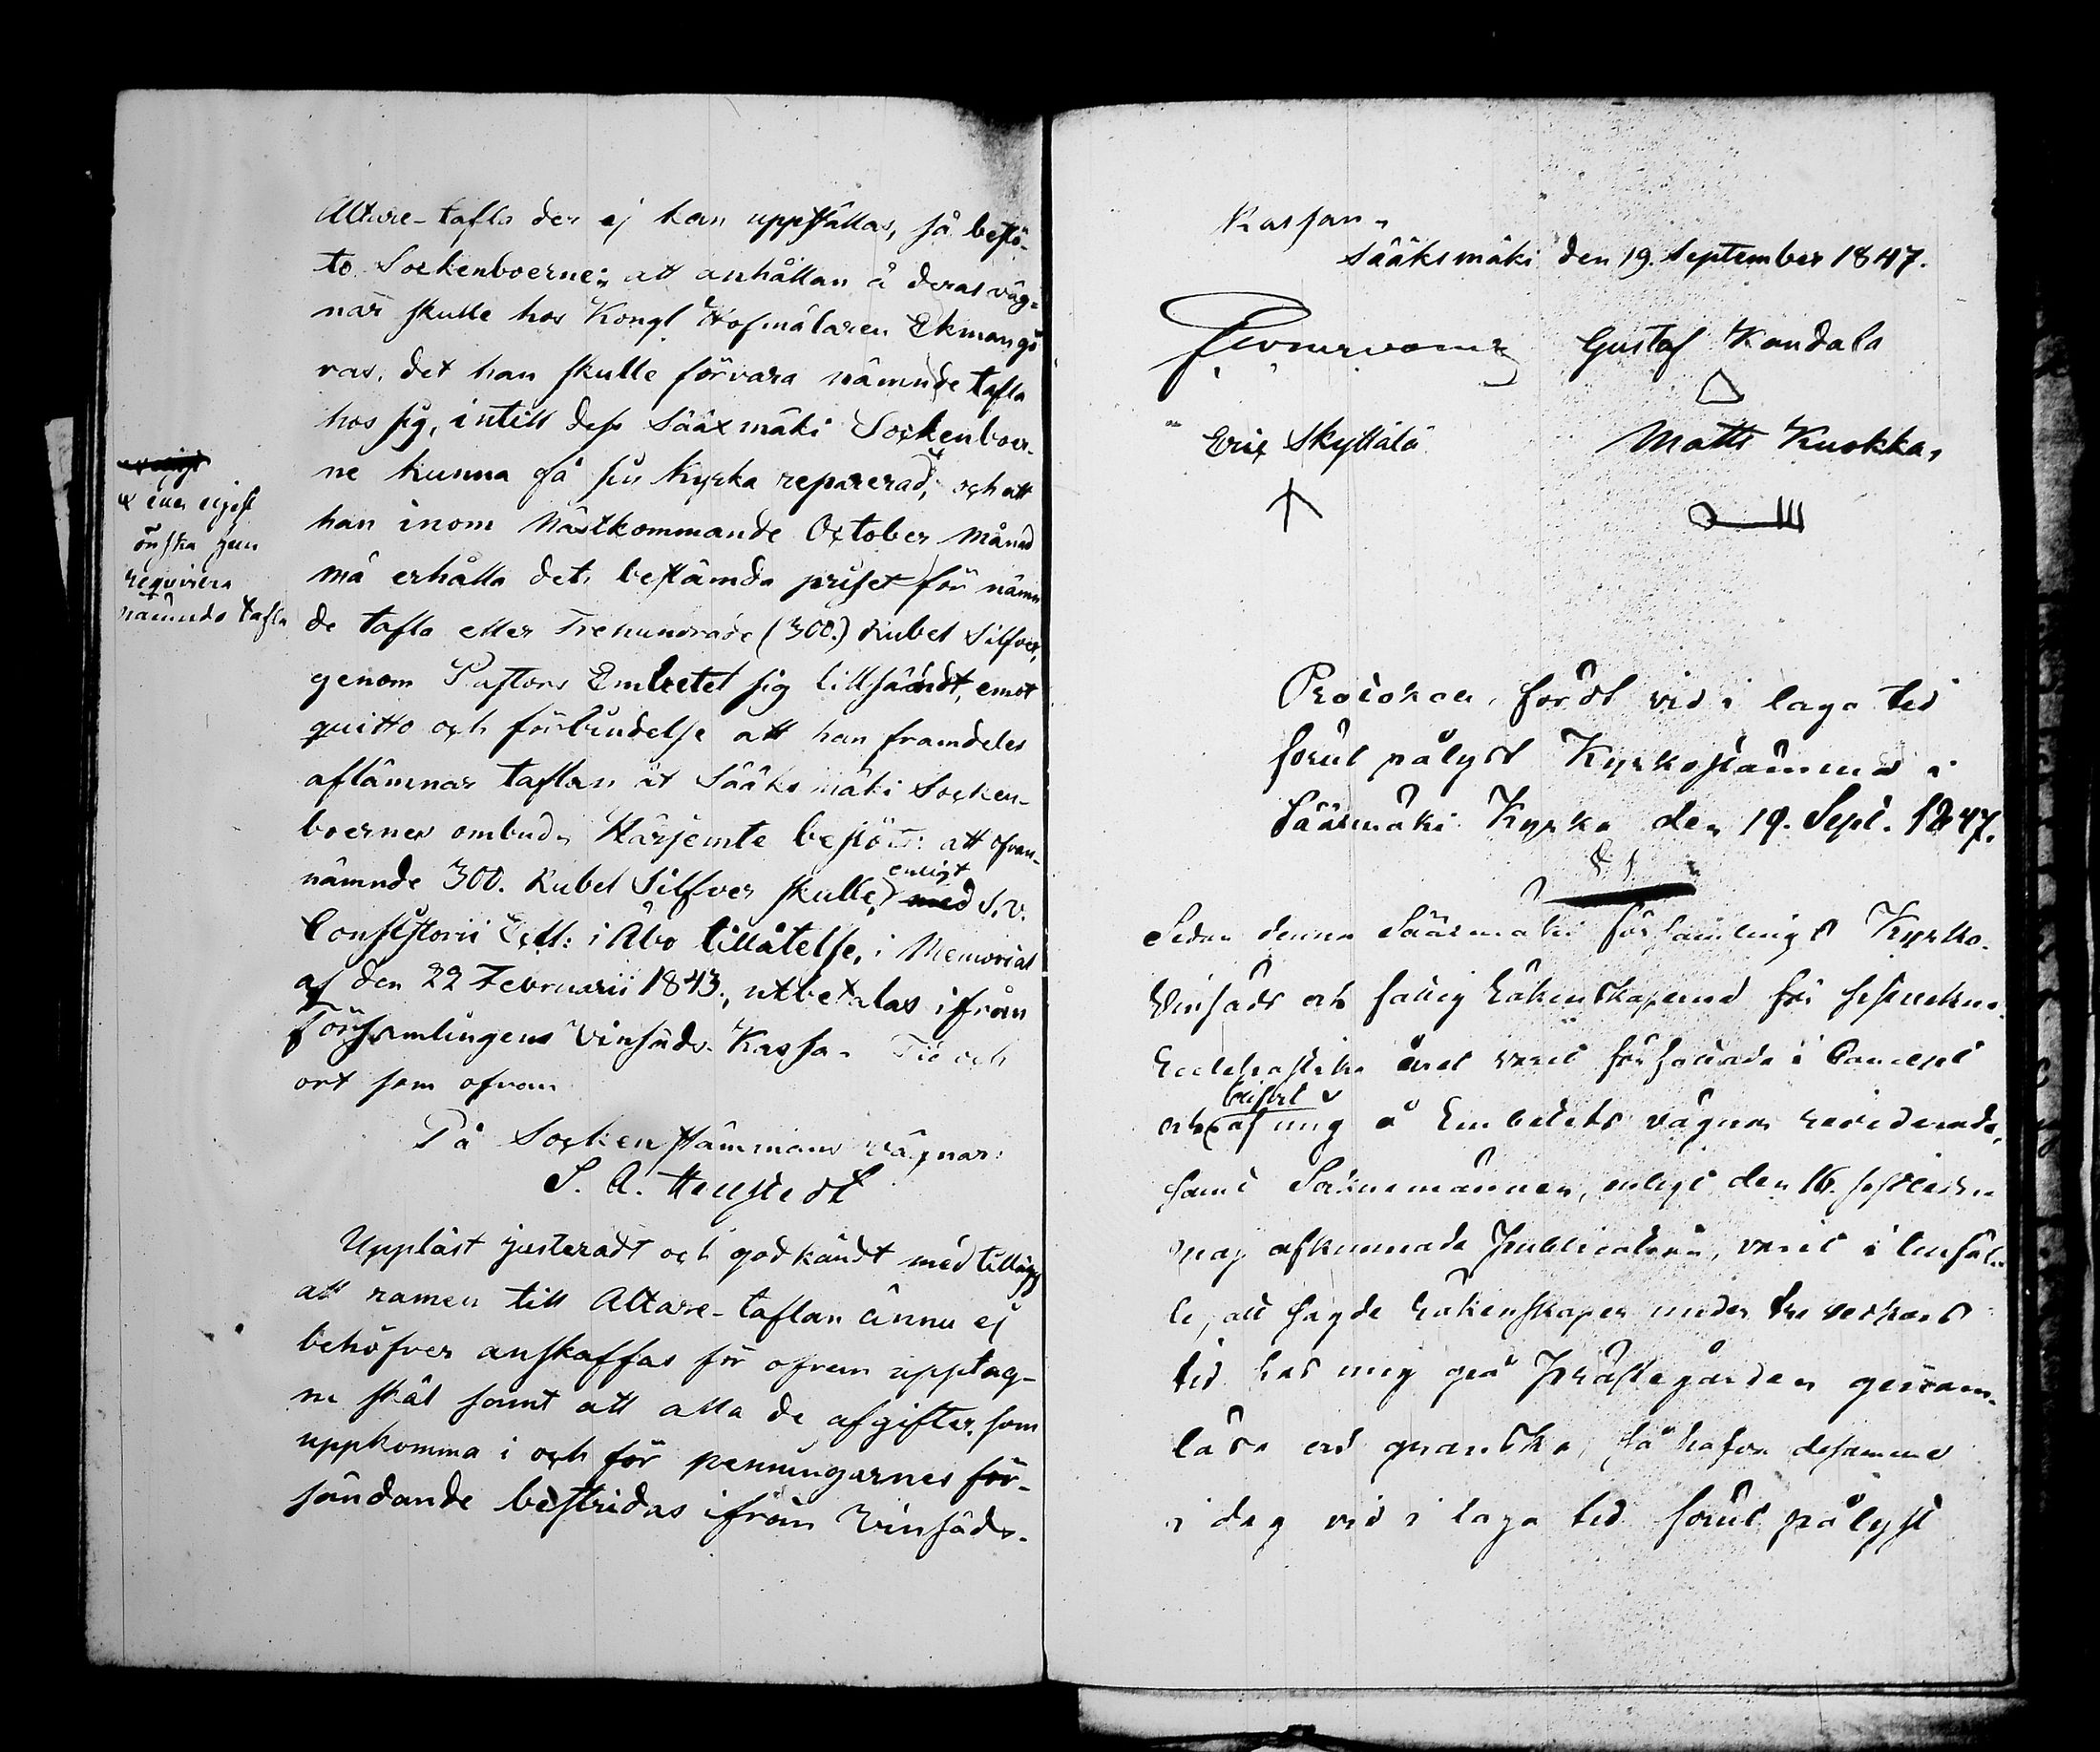 Altare-tafla der ej kan uppställas, så beslö-
to Sockenboerne: att anhållan å deras väg-
nar skulle hos Kongl Hofmålaren Ekman gö
ras, det han skulle förvara nämnde tafla
hos sig, intill dess Sääxmäki Sockenboer-
ne kunna få sin Kyrka reparerad, och att
han inom Nästkommande October månad
må erhålla det bestämda priset för nämn
de tafla eller Trehundrade (300.) Rubel Silfver,
genom Pastors Embetet sig tillsändt, emot
quitto och förbindelse att han framdeles
aflämnar taflan åt Sääksmäki Socken-
boernes ombud. Härjemte beslöts: att ofvan-
nämnde 300. Rubel Silfver skulle, med S. V.
enligt
Consistorii Eccl: i Åbo tillåtelse, i Memorial
af den 22 Februarii 1843, utbetalas ifrån
Församlingens Vinsäds-Kassa. Tid och
ort som ofvan
På Sockenstämmans vägnar:
S. A. Hellstedt
Uppläst justeradt och godkändt med tillägg
att ramen till Altare-taflan ännu ej
behöfver anskaffas för ofvan upptag-
ne skäl samt att alla de afgifter, som
uppkomma i och för penningarnes för-
sändande bestridas ifrån Vinsäds-
önska
requirera
nämnde tafla
Kassan.
Sääksmäki den 19. September 1847.
Gustaf Kandala
Eric Skyttälä
Matts Kuokka,
Protokoll, fördt vid i laga tid
förut pålyst Kyrkostämma i
Sääxmäki Kyrka den 19. Sept. 1847.
§ 1
Sedan denna Sääxmäki församlings Kyrko-
Vinsäds och fattig Räkenskaperne för
Ecclesiastika året varit författade i Concept
och af mig å Embetets vägnar reviderade,
samt Socknemännen, enligt den 16.
afkunnade publication, varit i tillfäl-
le, att sagde Räkenskaper under tre veckors
tid hos mig på Prästegården genom-
läsa och granska, så hafva desamme
i dag vid i laga tid förut pålyst